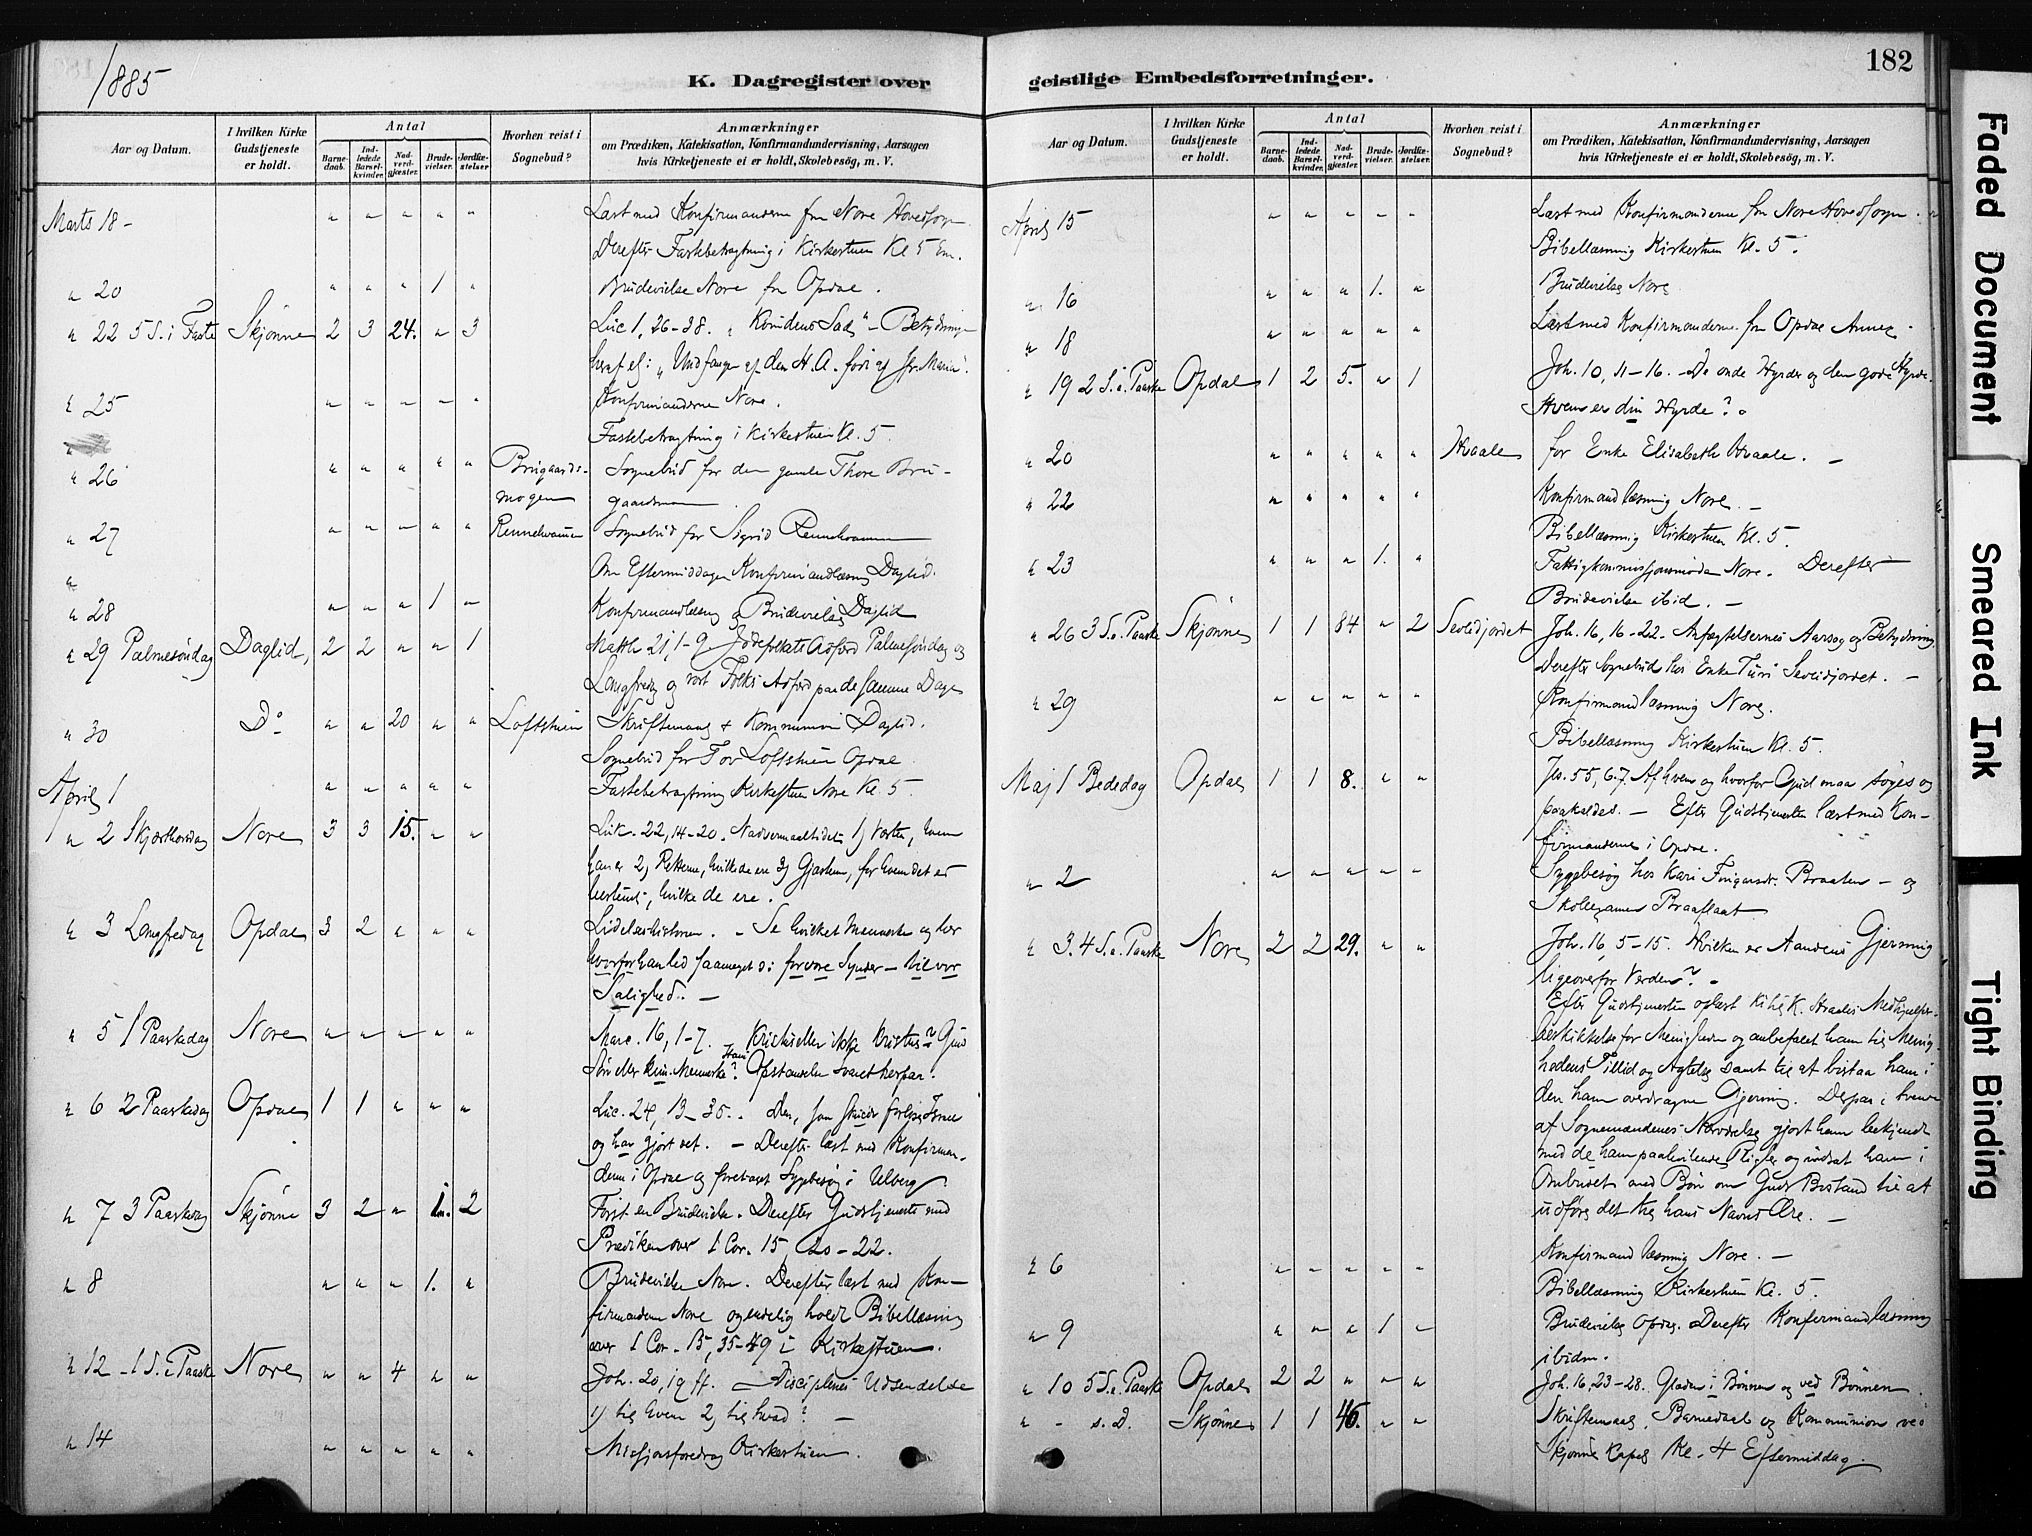 1885
K. Dagregister over
Aar og Datum.
I hvilken Kirke Gudstjeneste er holdt.
Antal
Barnedaab.
Indledede Barselkvinder.
Nadverdgjæster.
Brudevielser.
Jordfæstelser
Hvorhen reist i Sognebud?
Anmærkninger
om Prædiken, Katekisation, Konfirmandundervisning, Aarsagen
hvis Kirketjeneste ei er holdt, Skolebesög, m. V.
Marts 18 - " " " " " Læst med Konfirmanderne fra Nore Hovedsogn
Derefter Fastebetragtning i Kirkestuen Kl 5 Em.
" 20 " " " 1 " Brudevielse Nore fra Opdal.
" 22 5 S. i Faste Skjønne 2 3 24. " 3 Luc 1, 26-38. "Kvindens Sæd" - Betydningen
heraf
" 25 " " " " " Konfirmanderne Nore.
Fastebetragtning i Kirkestuen Kl. 5.
" 26 " " " " " Brugaards- Sognebud for den gamle Thore Bru-
mogen gaardsmoen.
" 27 " " " " " Rennehvammen Sognebud for Sigrid Rennehvammen
Om Eftermiddagen Konfirmandlæsning Daglid.
" 28 " " " 1 " Konfirmandlæsning og Brudevielse Daglid
" 29 Palmesøndag Daglid, 2 2 " " 1 Matth 21, 1-9. Jødefolkets Adfærd Palmesøndag og
Langfredag og vort Folks Adfærd paa de samme Dage
" 30 Do " " 20 " " Loftstuen Skriftemaal & Kommunion Daglid.
Sognebud for Tov Loftstuen Opdal.
April 1 " " " " " Fastebetragtning Kirkestuen Nore Kl. 5
" 2 Skjærthorsdag Nore 3 3 15. " " Luk. 22, 14-20. Nadvermaaltidet 1) Værten, hvem
han er 2) Retterne, hvilke de ere 3) Gjæsterne, for hvem det er
bestemt, hvilke de ere.
" 3 Langfredag Opdal 3 2 " " " Lidelseshistorien. - Se hvilket Menneske og hør
hvorfor han led saameget : for vore Synder - til vor
Salighed. -
" 5 1 Paaskedag Nore " " " " " Marc. 16, 1-7. Kristus eller ikke Kristus? Guds
Søn eller kun Menneske? Opstandelsen svaret herpaa.
" 6 2 Paaskedag Opdal 1 1 " " " Luc. 24, 13-35. - Den, som skulde forløse Israel
og har gjort det. - Derefter læst med Konfirman-
derne i Opdal og foretaget Sygebesøg i Ulberg.
" 7 3 Paaskedag Skjønne 3 2 " 1. 2 Først en Brudevielse. Derefter Gudstjeneste med
Prædiken over 1 Cor. 15, 20-22.
" 8 " " " 1. " Brudevielse Nore. Derefter læst med Kon-
firmanderne Nore og endelig holdt Bibellæsning
over 1 Cor. 15, 35-49 i Kirkestuen.
" 12 - 1 S. e. Paaske Nore " " 4 " " Joh. 20, 19 ff. - Disciplenes Udsendelse
1) til hvem 2) til hvad? -
" 14 " " " " " Missionsforedrag Kirkestuen.
geistlige Embedsforretninger.
182
Aar og Datum.
I hvilken Kirke Gudstjeneste er holdt.
Antal
Barnedaab.
Indledede Barselkvinder.
Nadverdgjæster.
Brudevielser.
Jordfæstelser.
Hvorhen reist i Sognebud?
Anmærkninger
om Prædiken, Katekisation, Konfirmandundervisning, Aarsagen
hvis Kirketjeneste ei er holdt, Skolebesög, m. V.
April 15 " " " " " Læst med Konfirmanderne fra Nore Hovedsogn.
Bibellæsning Kirkestuen Kl. 5.
" 16 " " " 1. " Brudevielse Nore
" 18 " " " " " Læst med Konfirmanderne fra Opdal Annex.
" 19 2 S. e. Paaske Opdal 1 2 5. " 1 Joh. 10, 11-16. - De onde Hyrder og den gode Hyrde.
Hvem er din Hyrde?
" 20 " " " " " Hvaale for Enke Elisabeth Hvaale. -
" 22 " " " " " Konfirmandlæsning Nore. -
Bibellæsning Kirkestuen Kl. 5.
" 23 " " " 1. " Fattigkommissionsmøde Nore. Derefter
Brudevielse ibid. -
" 26 3 S. e. Paaske Skjønne 1 1 84 " 2 Sevlidjordet Joh. 16, 16-22. Anfægtelsernes Aarsag og Betydning.
Derefter Sognebud hos Enke Turi Sevlidjordet. -
" 29 " " " " " Konfirmandlæsning Nore.
Bibellæsning Kirkestuen Kl. 5.
Maj 1 Bededag Opdal 1 1 8. " " Jes. 55, 6.7. Af hvem og hvorfor Gud maa søges og
paakaldes. - Efter Gudstjenesten læst med Kon-
firmanderne i Opdal.
" 2 " " " " " Sygebesøg hos Kari Braaten - og
Skoleexamen Braaflaat
" 3. 4 S. e. Paaske Nore 2 2 29. " " Joh. 16, 5-15. Hvilken er Aandens Gjerning
ligeoverfor Verden? -
Efter Gudstjenesten oplæst K. Hvaales Medhjælper-
beskikkelse for Menigheden og anbefalet ham til Menig-
hedens Tillid og Agtelse samt til at bistaa ham i
den ham overdragne Gjerning. Derpaa i tvende
af Sognemændenes Nærværelse gjort ham bekjendt
med de ham paahvilende Pligter og indsat ham i
Ombudet med Bøn om Guds Bistand til at
udføre det til hans Navns Ære. -
" 6 " " " " " Konfirmandlæsning Nore. -
Bibellæsning Kirkestuen Kl. 5.
" 9 " " " 1 " Brudevielse Opdal. Derefter Konfirmandlæsning
ibidm.
" 10 5 S. e. Paaske Opdal 2 2 " " " Joh. 16, 23-28. Glæden i Bønnen og ved Bønnen.
" - s. D. Skjønne 1 1 46. " " Skriftemaal, Barnedaab og Kommunion ved
Skjønne Kapel Kl. 4 Eftermiddag.
Faded Document
Smeared Ink
Tight Binding